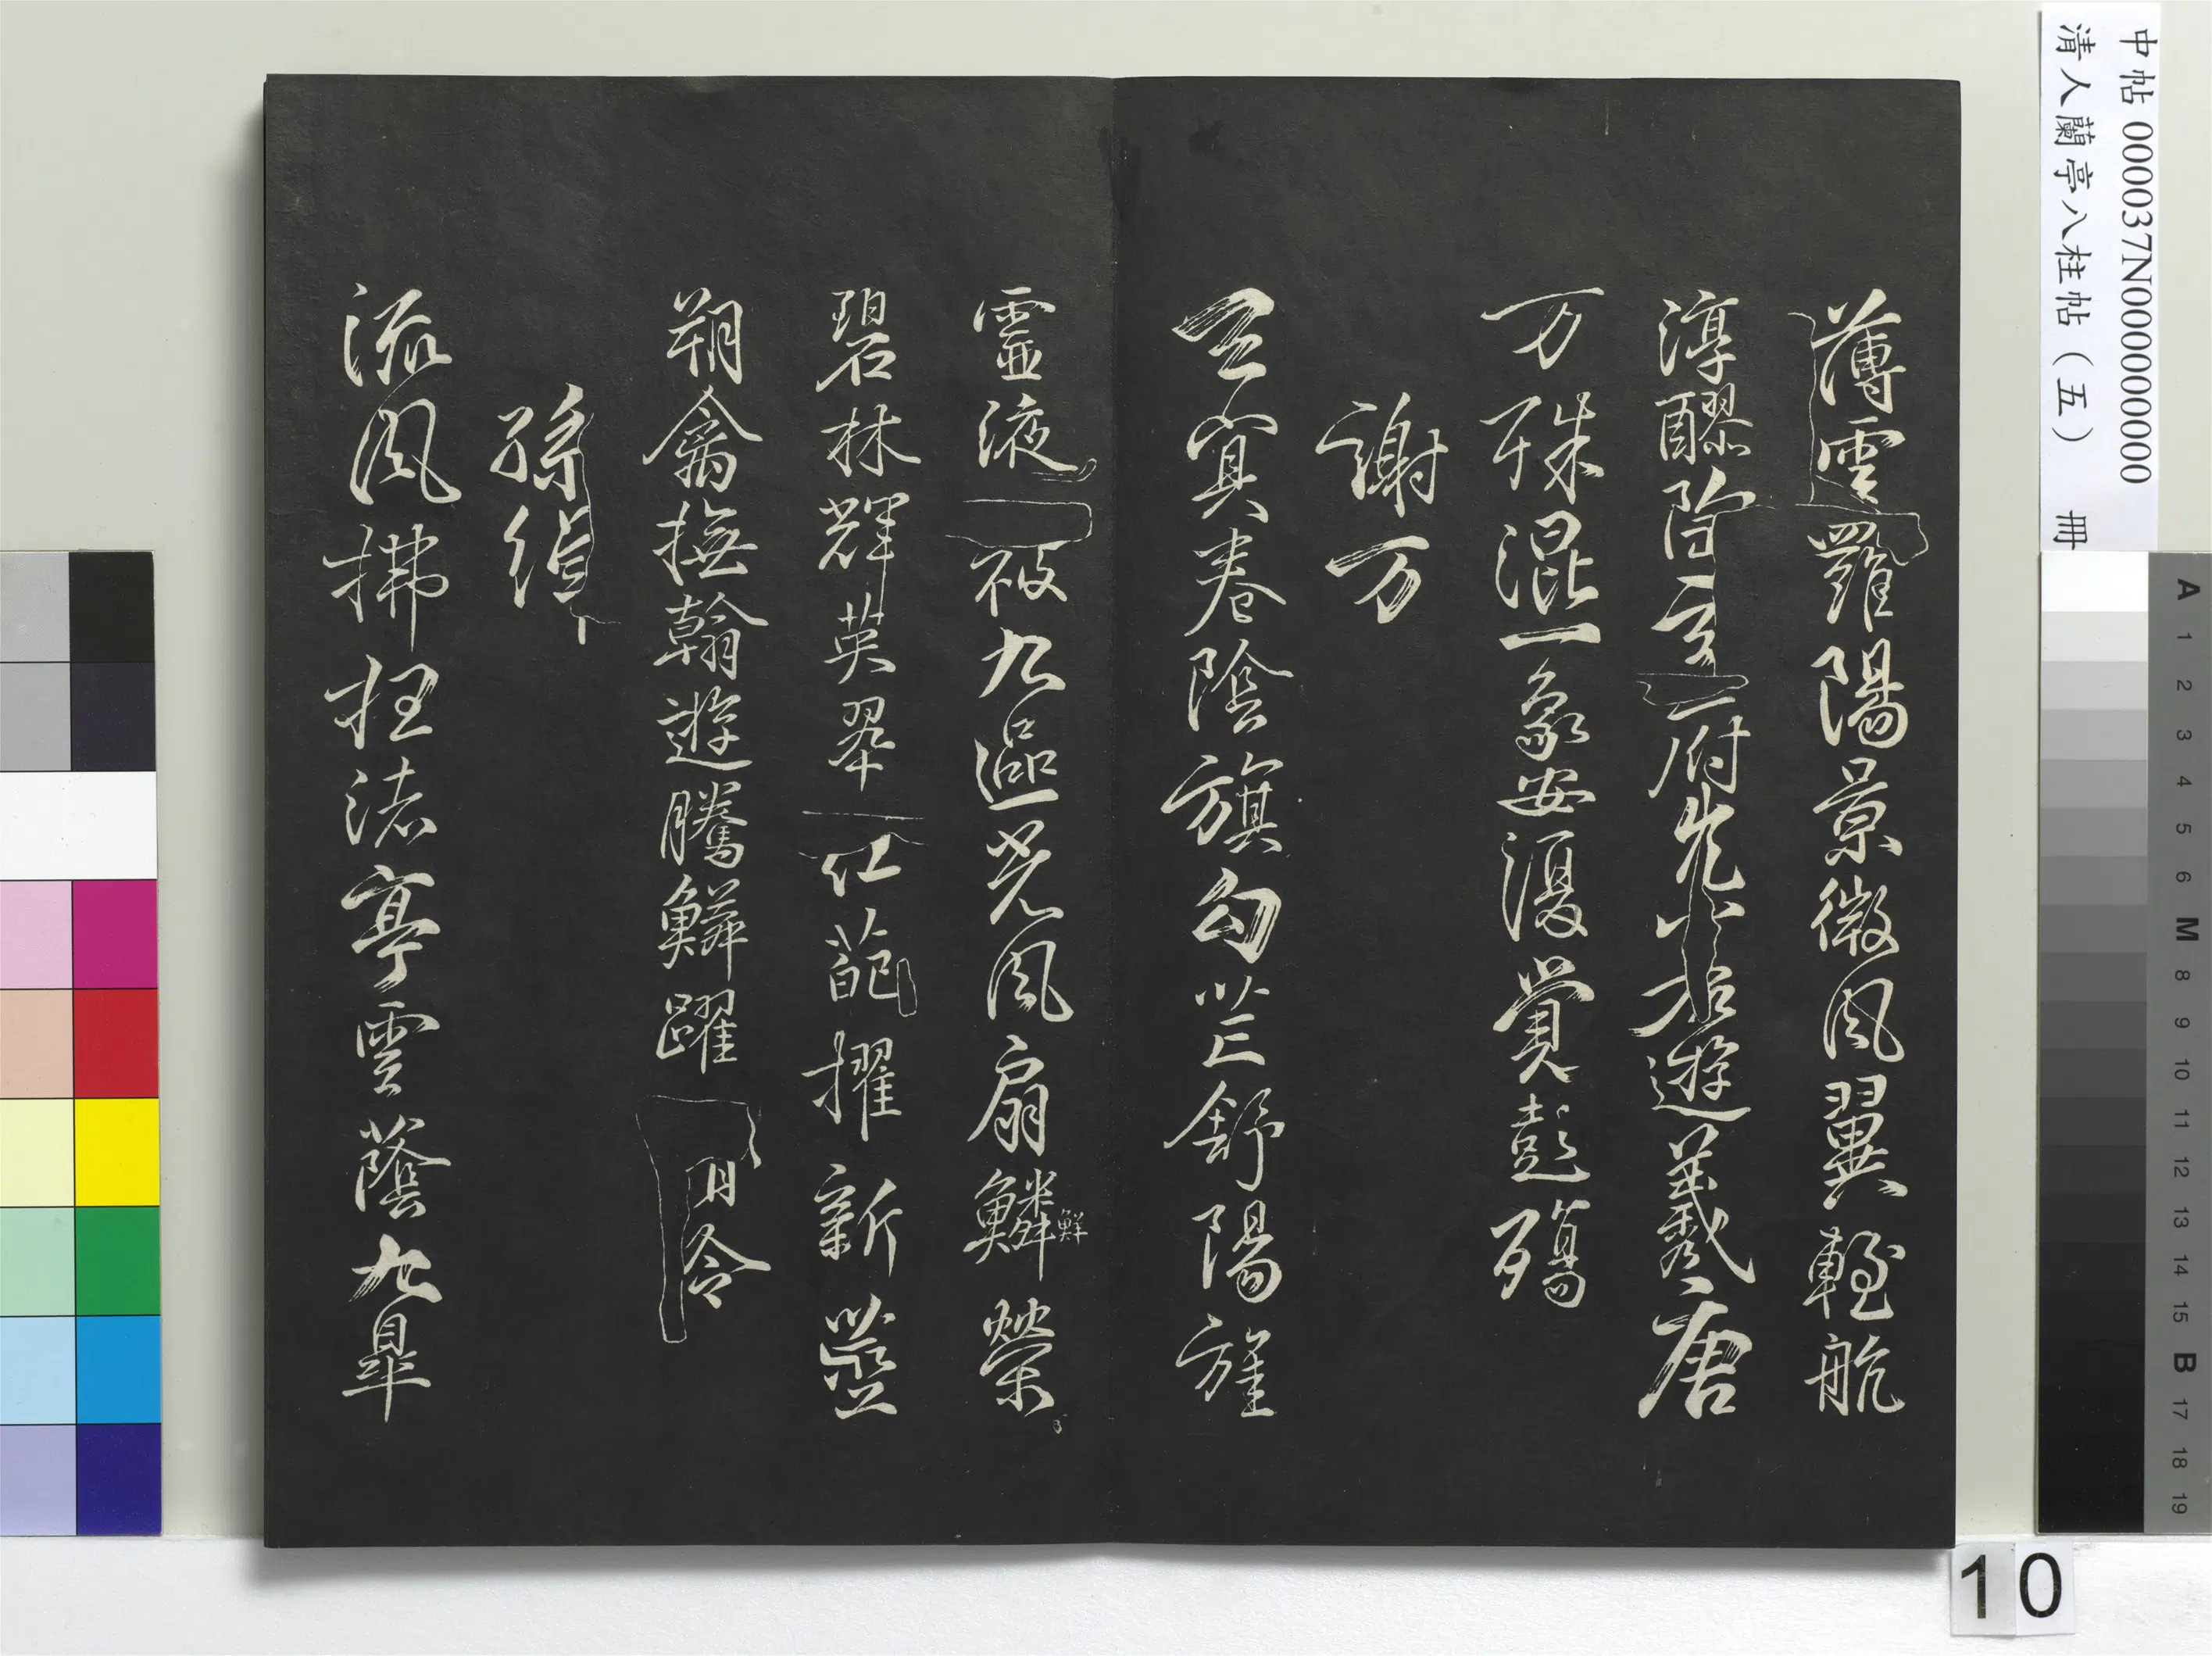 中帖 000037N000000000
清人蘭亭八柱帖（五） 冊
薄雲羅陽景微風翼輕航
淳醪陶玄府兀若遊羲唐
万殊混一象安復覺彭殤
謝万
玄冥卷陰旗勾芒舒陽旌
靈液被九區光風扇鱗榮
鮮
碧林輝英翠紅葩擢新莖
朔禽撫翰遊騰鱗躍清泠
孫綽
流風拂枉渚亭雲蔭九皐
A
1
2
3
4
5
6
M
8
9
10
11
12
13
14
15
B
17
18
19
10